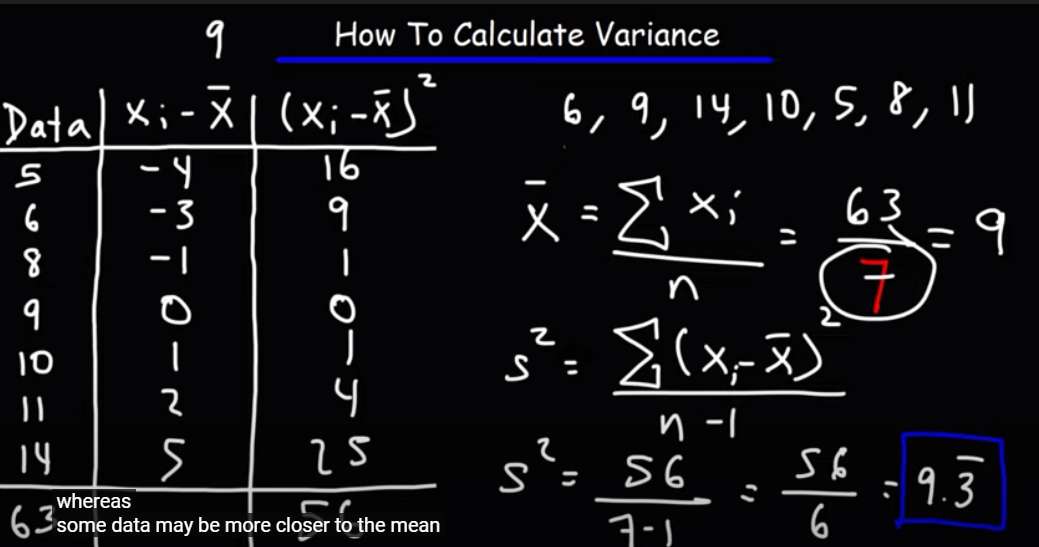 9 How To Calculate Variance
Data xᵢ - x̄ (xᵢ - x̄)²
5 -4 16
6 -3 9
8 -1 1
9 0 0
10 1 1
11 2 4
14 5 25
63 56
6, 9, 14, 10, 5, 8, 11
x̄ = ∑ xᵢ / n = 63 / 7 = 9
s² = ∑(xᵢ - x̄)² / n - 1
s² = 56 / 7-1 = 56 / 6 = 9.3̄
whereas
some data may be more closer to the mean